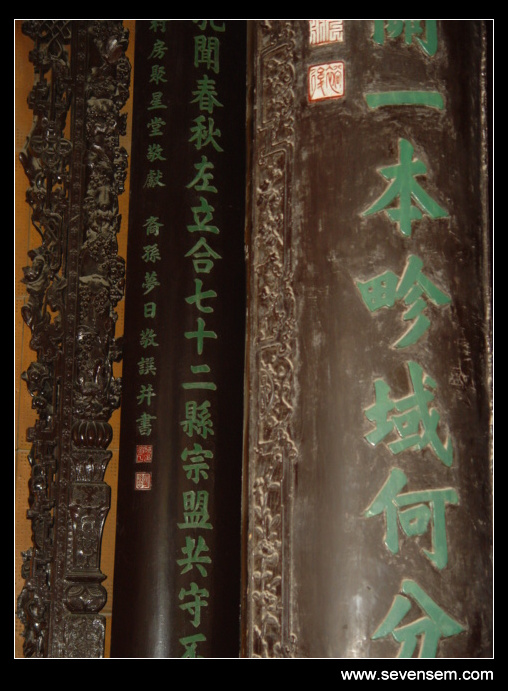 關一本畛域何分
聞春秋左立合七十二縣宗盟共守
房聚星堂敬獻 裔孫夢日敬譔并書
www.sevensem.com